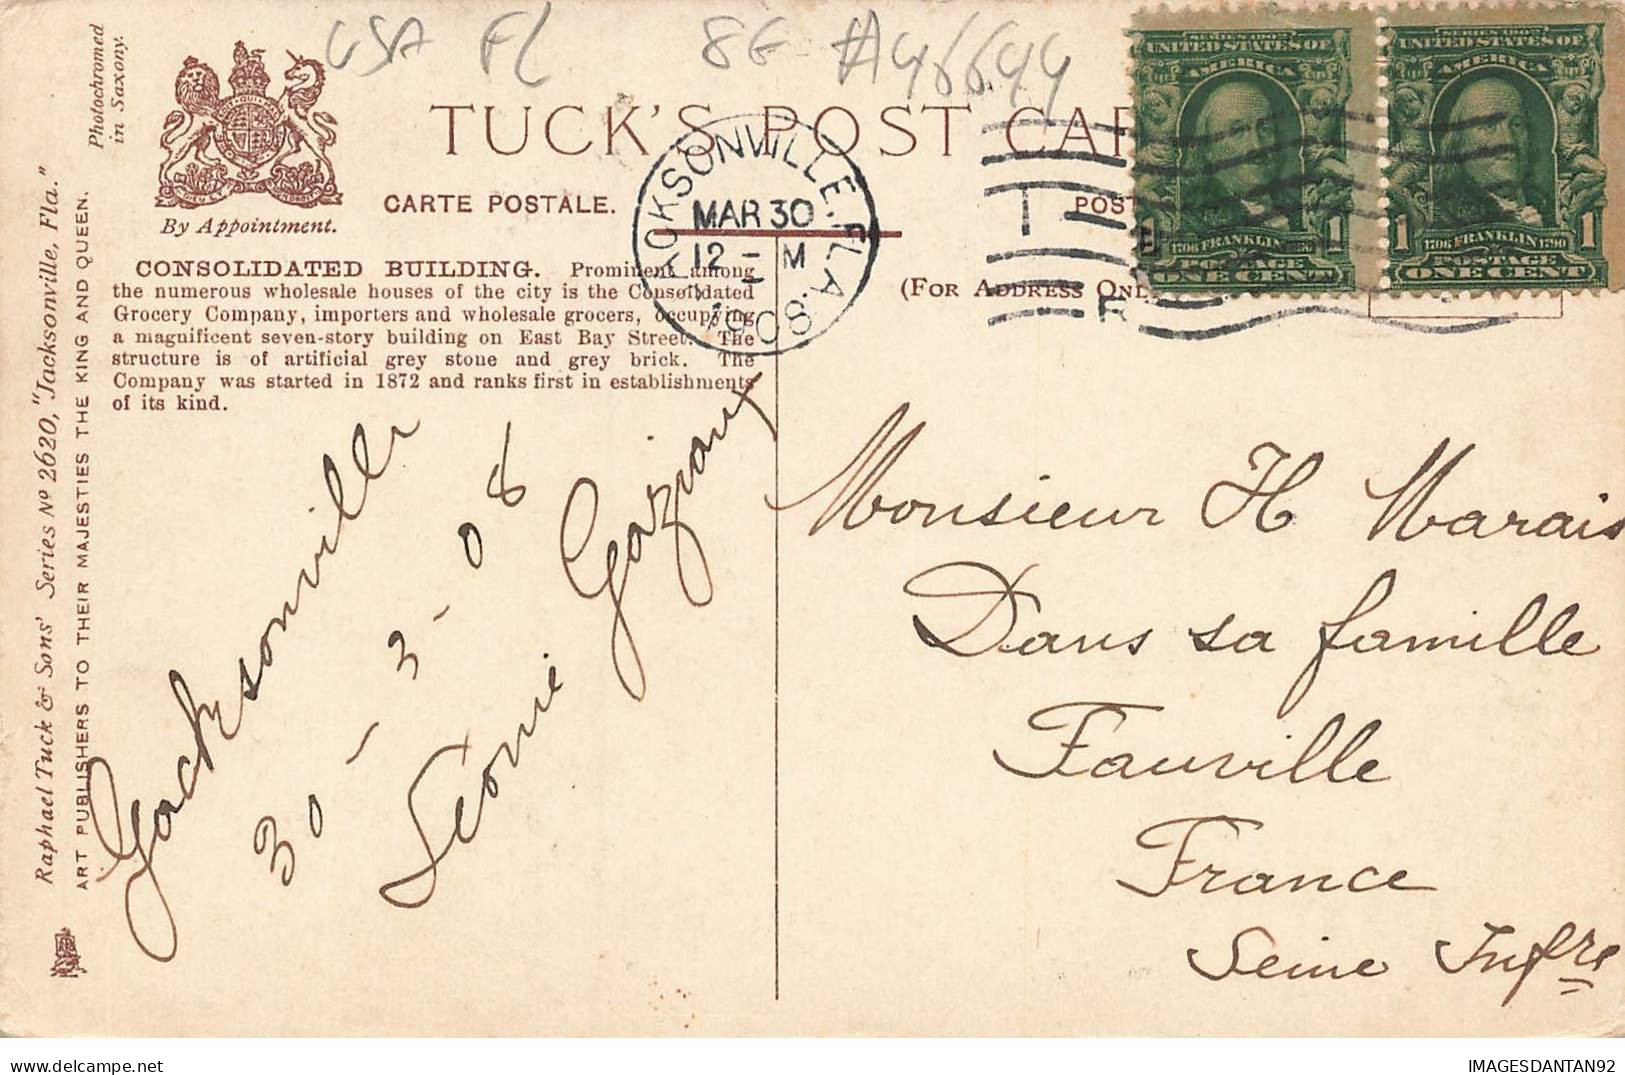 USA FL 8E #46644
Photochromed
in Saxony.
By Appointment.
TUCK'S POST CAR
CARTE POSTALE.
POST
(FOR ADDRESS ONL
JACKSONVILLE, FLA.
MAR 30
12 - M
1908
SERIES 1902
UNITED STATES OF
AMERICA
1 1706 FRANKLIN 1790 1
POSTAGE
ONE CENT
SERIES 1902
UNITED STATES OF
AMERICA
1 1706 FRANKLIN 1790 1
POSTAGE
ONE CENT
CONSOLIDATED BUILDING. Prominent among
the numerous wholesale houses of the city is the Consolidated
Grocery Company, importers and wholesale grocers, occupying
a magnificent seven-story building on East Bay Street. The
structure is of artificial grey stone and grey brick. The
Company was started in 1872 and ranks first in establishments
of its kind.
Raphael Tuck & Sons' Series Nº 2620, "Jacksonville, Fla."
ART PUBLISHERS TO THEIR MAJESTIES THE KING AND QUEEN.
Jacksonville
30 - 3 - 08
Léonie
Monsieur H Marais
Dans sa famille
Fauville
France
Seine Infre
IMAGESDANTAN92